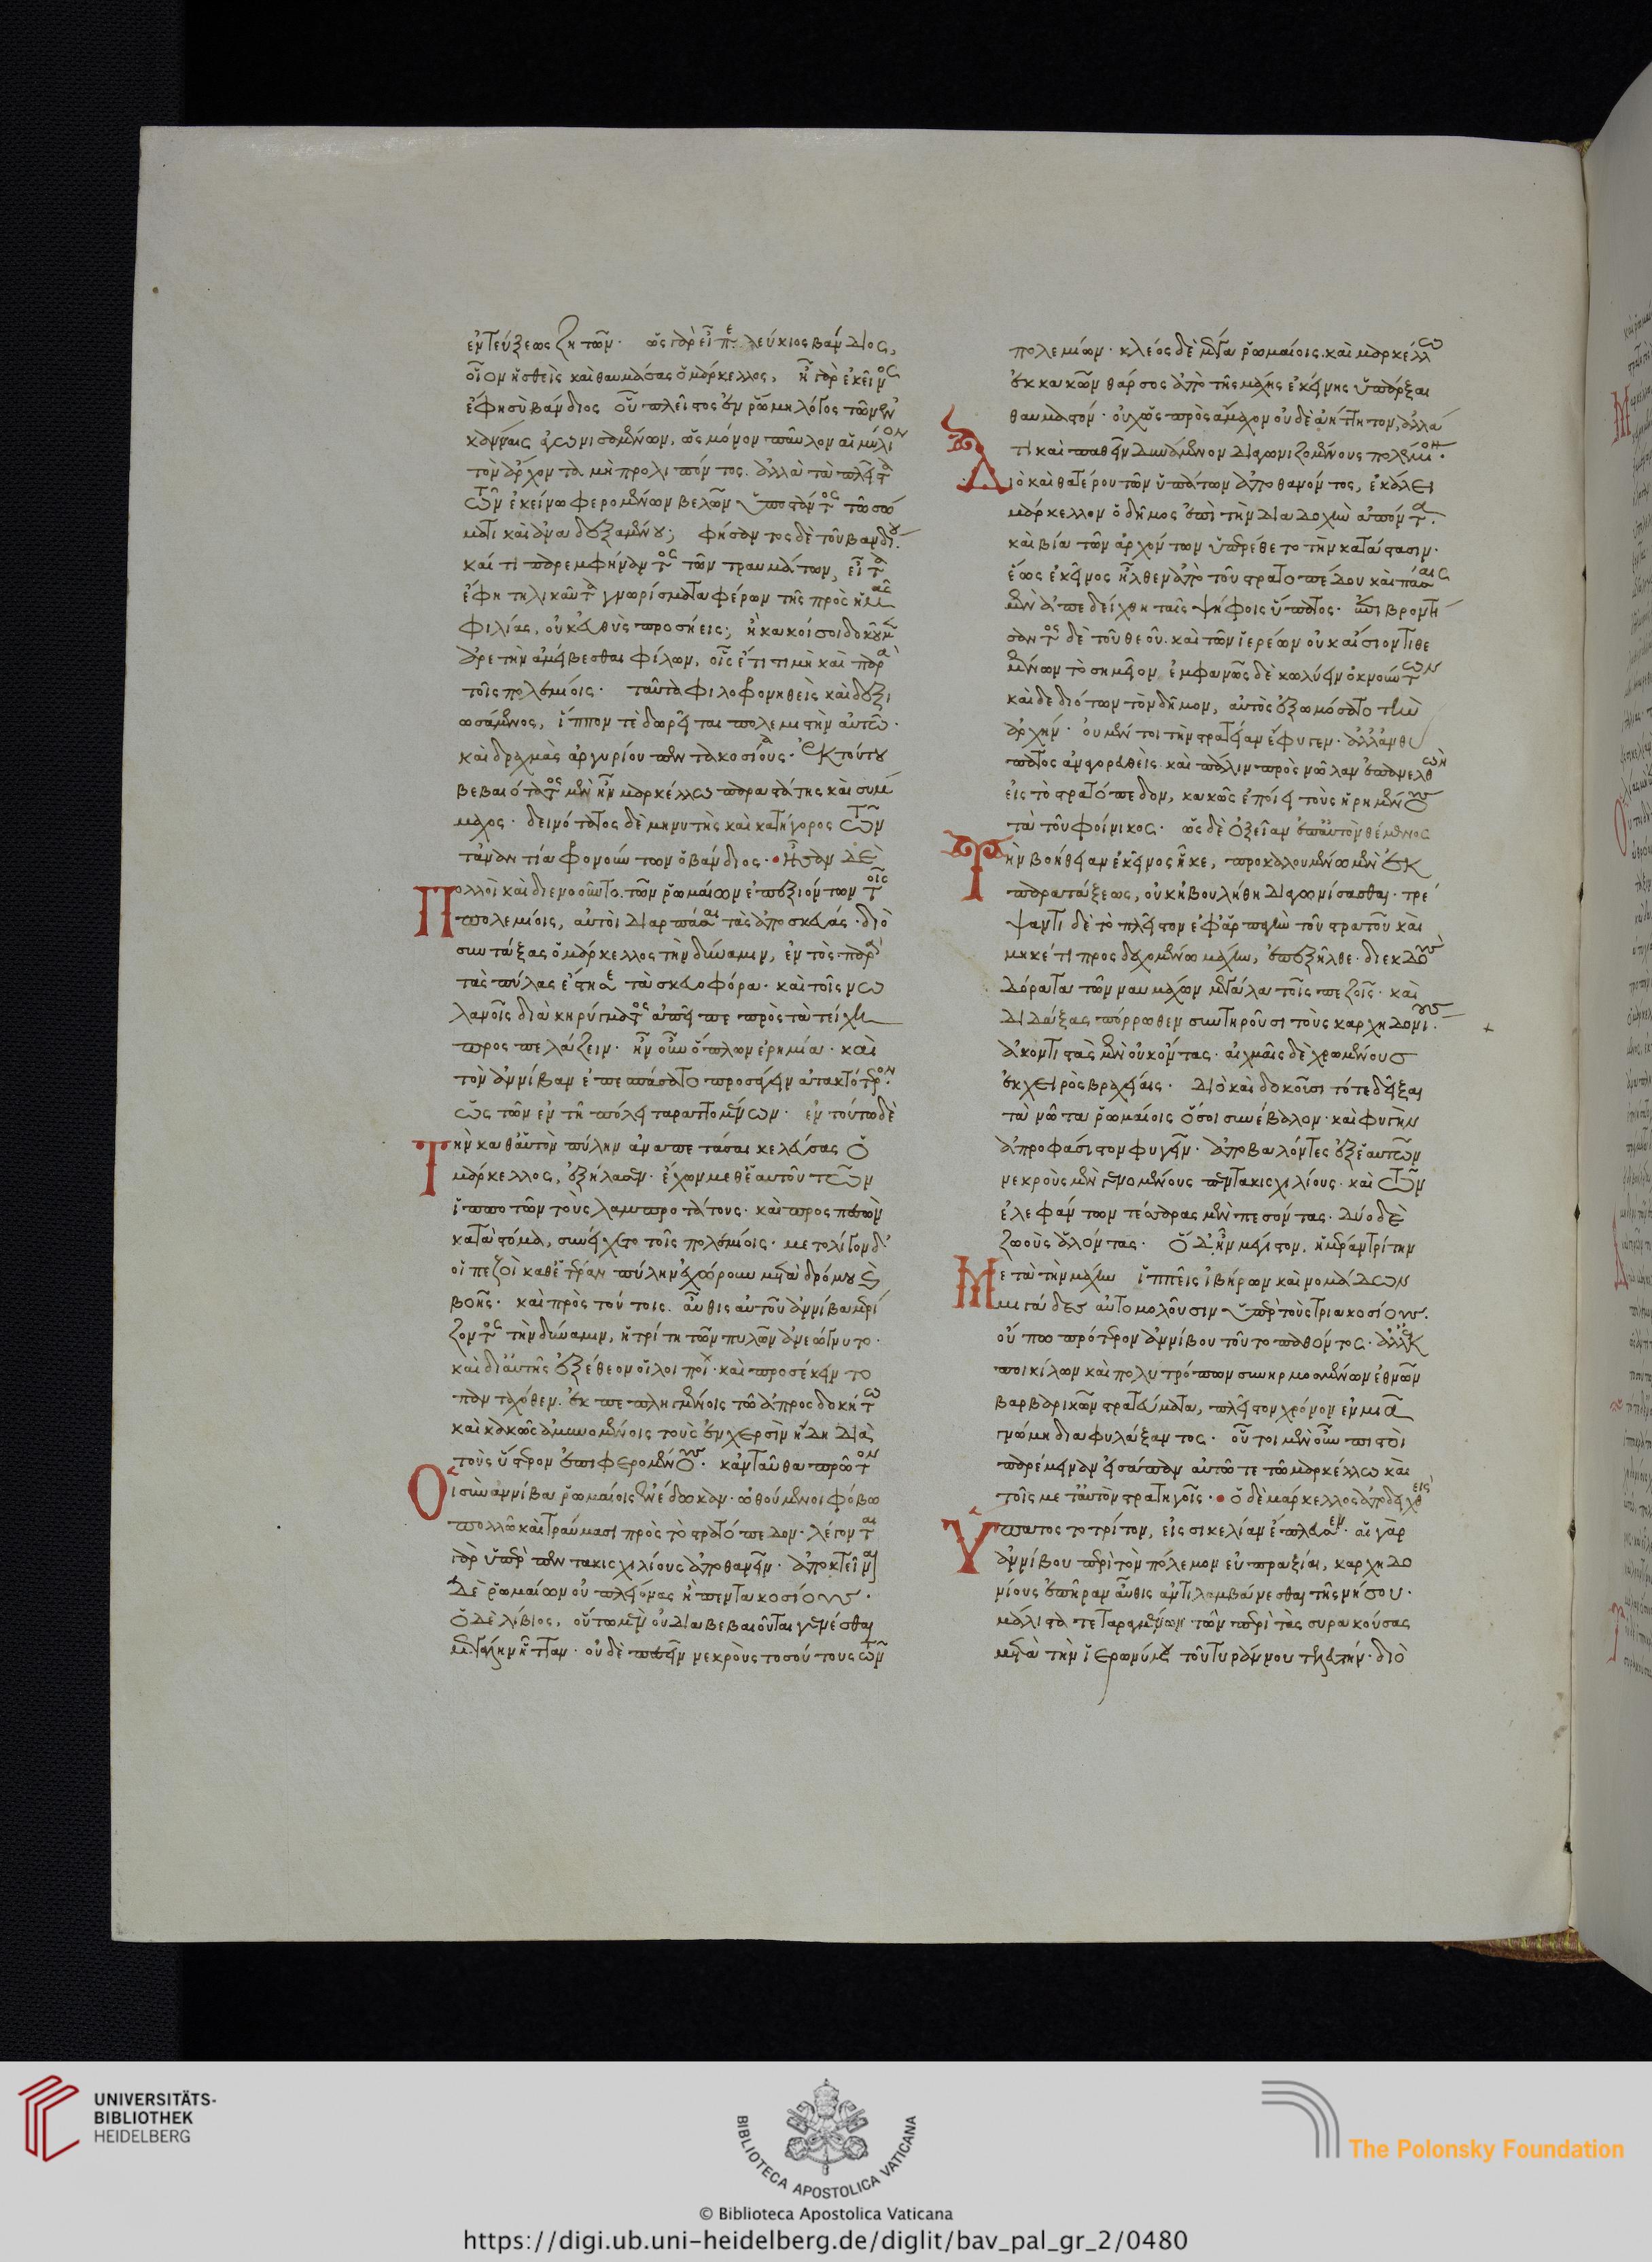 ἐντεύξεως ζητῶν· ὡς γὰρ εἶπε λεύκιος βάνδιος,
οἷον ἡσθεὶς καὶ θαυμάσας ὁ μάρκελλος, ἦ γὰρ ἐκεῖνος
ἔφη σὺ βάνδιος οὗ πλεῖστος ἐν ῥώμη λόγος τῶν ἐν
κάνναις ἀγωνισαμένων, ὡς μόνον παῦλον αἰμίλιον
τὸν ἄρχοντα μὴ προλιπόντος. ἀλλὰ τὰ πλεῖστα
τῶν ἐκείνω φερομένων βελῶν ὑποστάντος τῶ σώ
ματι καὶ ἀναδεξαμένου; φήσαντος δὲ τοῦ βανδίου·
καί τι παρεμφήναντος τῶν τραυμάτων, εἶτα
ἔφη τηλικαῦτα γνωρίσματα φέρων τῆς πρὸς ἡμᾶς
φιλίας, οὐκ εὐθὺς προσήεις; ἢ κακοί σοι δοκοῦμεν
ἀρετὴν ἀμείβεσθαι φίλων, οἷς ἔστι τιμὴ καὶ παρὰ
τοῖς πολεμίοις· ταῦτα φιλοφρονηθεὶς καὶ δεξι
ωσάμενος, ἵππον τὲ δωρεῖται πολεμιστὴν αὐτῶ·
καὶ δραχμὰς ἀργυρίου πεντακοσίας· ἐκ τούτου
βεβαιότατος μὲν ἦν μαρκέλλω παραστάτης καὶ σύμ
μαχος· δεινότατος δὲ μηνυτὴς καὶ κατήγορος τῶν
τἀναντία φρονούντων ὁ βάνδιος· ἦσαν δὲ
πολλοὶ καὶ διενοοῦντο τῶν ῥωμαίων ἐπεξιόντων τοῖς
πολεμίοις, αὐτοὶ διαρπάσαι τὰς ἀποσκευάς· διὸ
συντάξας ὁ μάρκελλος τὴν δύναμιν, ἐντὸς παρὰ
τὰς πύλας ἔστησε τὰ σκευοφόρα· καὶ τοῖς νω
λανοῖς διὰ κηρύγματος ἀπεῖπε πρὸς τὰ τείχη
προσπελάζειν· ἦν οὖν ὅπλων ἐρημία· καὶ
τὸν ἀννίβαν ἐπεσπάσατο προσάγειν ἀτακτότερον·
ὡς τῶν ἐν τῆ πόλει ταραττομένων· ἐν τούτω δὲ
τὴν καθ' αὑτὸν πύλην ἀναπετάσαι κελεύσας ὁ
μάρκελλος, ἐξήλασεν· ἔχων μεθ' ἑαυτοῦ τῶν
ἱπποτῶν τοὺς λαμπροτάτους· καὶ προσπεσὼν
κατὰ στόμα, συνείχετο τοῖς πολεμίοις· μετ' ὀλίγον δ'
οἱ πεζοὶ καθ' ἑτέραν πύλην ἐχώρουν μετὰ δρόμου καὶ
βοῆς· καὶ πρὸς τούτοις αὖθις αὐτοῦ ἀννίβα μερί
ζοντος τὴν δύναμιν, ἡ τρίτη τῶν πυλῶν ἀνεώγνυτο·
καὶ δι' αὐτῆς ἐξέθεον οἱ λοιποὶ· καὶ προσέκειντο
πανταχόθεν. ἐκπεπληγμένοις τῶ ἀπροσδοκήτω
καὶ κακῶς ἀμυνομένοις τοὺς ἐν χερσὶν ἤδη διὰ
τοὺς ὕστερον ἐπιφερομένους· κἀνταῦθα πρῶτον
οἱ σὺν ἀννίβα ῥωμαίοις ἐνέδωκαν· ὠθούμενοι φόβω
πολλῶ καὶ τραύμασι πρὸς τὸ στρατόπεδον· λέγονται
γὰρ ὑπὲρ πεντακισχιλίους ἀποθανεῖν· ἀποκτεῖναι
δὲ ῥωμαίων οὐ πλείονας ἢ πεντακοσίους·
ὁ δὲ λίβιος, οὕτω μὲν οὐ διαβεβαιοῦται γενέσθαι
μεγάλην ἧτταν· οὐδὲ πεσεῖν νεκροὺς τοσούτους τῶν
πολεμίων· κλέος δὲ μέγα ῥωμαίοις καὶ μαρκέλλω
ἐκ κακῶν θάρσος ἀπὸ τῆς μάχης ἐκείνης ὑπάρξαι
θαυμαστόν· οὐχ ὡς πρὸς ἄμαχον οὐδὲ ἀήττητον, ἀλλά
τι καὶ παθεῖν δυνάμενον διαγωνιζομένους πολέμιον·
διὸ καὶ θατέρου τῶν ὑπάτων ἀποθανόντος, ἐκάλει
μάρκελλον ὁ δῆμος ἐπὶ τὴν διαδοχὴν ἀπόντα·
καὶ βία τῶν ἀρχόντων ὑπερέθετο τὴν κατάστασιν·
ἕως ἐκεῖνος ἦλθεν ἀπὸ τοῦ στρατοπέδου καὶ πάσαις
μὲν ἀπεδείχθη ταῖς ψήφοις ὕπατος· ἐπιβροντή
σαντος δὲ τοῦ θεοῦ. καὶ τῶν ἱερέων οὐκ αἴσιον τιθε
μένων τὸ σημεῖον ἐμφανῶς δὲ κωλύειν ὀκνούντων
καὶ δεδιότων τὸν δῆμον, αὐτὸς ἐξωμόσατο τὴν
ἀρχήν· οὐ μέντοι τὴν στρατείαν ἔφυγεν· ἀλλ' ἀνθύ
πατος ἀναγορευθεὶς καὶ πάλιν πρὸς νῶλαν ἐπανελθὼν
εἰς τὸ στρατόπεδον, κακῶς ἐποίει τοὺς ἡρημένους
τὰ τοῦ φοίνικος· ὡς δὲ ὀξεῖαν ἐπ' αὐτὸν θέμενος
τὴν βοήθειαν ἐκεῖνος ἧκε, προκαλουμένω μὲν ἐκ
παρατάξεως, οὐκ ἠβουλήθη διαγωνίσασθαι· τρέ
ψαντι δὲ τὸ πλεῖστον ἐφ' ἁρπαγὴν τοῦ στρατοῦ καὶ
μηκέτι προσδεχομένω μάχην, ἐπεξῆλθε· διεκδοὺς
δόρατα τῶν ναυμάχων μεγάλα τοῖς πεζοῖς· καὶ
διδάξας πόρρωθεν συντηροῦσι τοὺς καρχηδονίους·
ἀκοντιστὰς μὲν οὐκ ὄντας· αἰχμαῖς δὲ χρωμένους
ἐκ χειρὸς βραχείαις· διὸ καὶ δοκοῦσι τότε δεῖξαι
τὰ νῶτα ῥωμαίοις ὅσοι συνέβαλον· καὶ φυγὴν
ἀπροφάσιστον φυγεῖν· ἀποβαλόντες ἐξ ἑαυτῶν
νεκροὺς μὲν γενομένους πεντακισχιλίους· καὶ τῶν
ἐλεφάντων τέσσαρας μὲν πεσόντας· δύο δὲ
ζωοὺς ἁλόντας· ὃ δ' ἦν μέγιστον, ἡμέρα τρίτη
μετὰ τὴν μάχην ἱππεῖς ἰβήρων καὶ νομάδων
μιγάδες αὐτομολοῦσιν ὑπὲρ τοὺς τριακοσίους·
οὔπω πρότερον ἀννίβου τοῦτο παθόντος· ἀλλ' ἐκ
ποικίλων καὶ πολυτρόπων συνηρμοσμένων ἐθνῶν
βαρβαρικῶν στράτευμα, πλεῖστον χρόνον ἐν μιᾶ
γνώμη διαφυλάξαντος· οὗτοι μὲν οὖν πιστοὶ
παρέμειναν εἰσάπαν αὐτῶ τε τῶ μαρκέλλω καὶ
τοῖς μετ' αὐτὸν στρατηγοῖς· ὁ δὲ μάρκελλος ἀποδειχθεὶς
ὕπατος τὸ τρίτον, εἰς σικελίαν ἔπλευσεν· αἱ γὰρ
ἀννίβου περὶ τὸν πόλεμον εὐπραξίαι, καρχηδο
νίους ἐπῆραν αὖθις ἀντιλαμβάνεσθαι τῆς νήσου·
μάλιστα τεταραγμένων τῶν περὶ τὰς συρακούσας
μετὰ τὴν ἱερωνύμου τοῦ τυράννου τελευτήν· διὸ
UNIVERSITÄTS-
BIBLIOTHEK
HEIDELBERG
BIBLIOTECA APOSTOLICA VATICANA
The Polonsky Foundation
© Biblioteca Apostolica Vaticana
https://digi.ub.uni-heidelberg.de/diglit/bav_pal_gr_2/0480